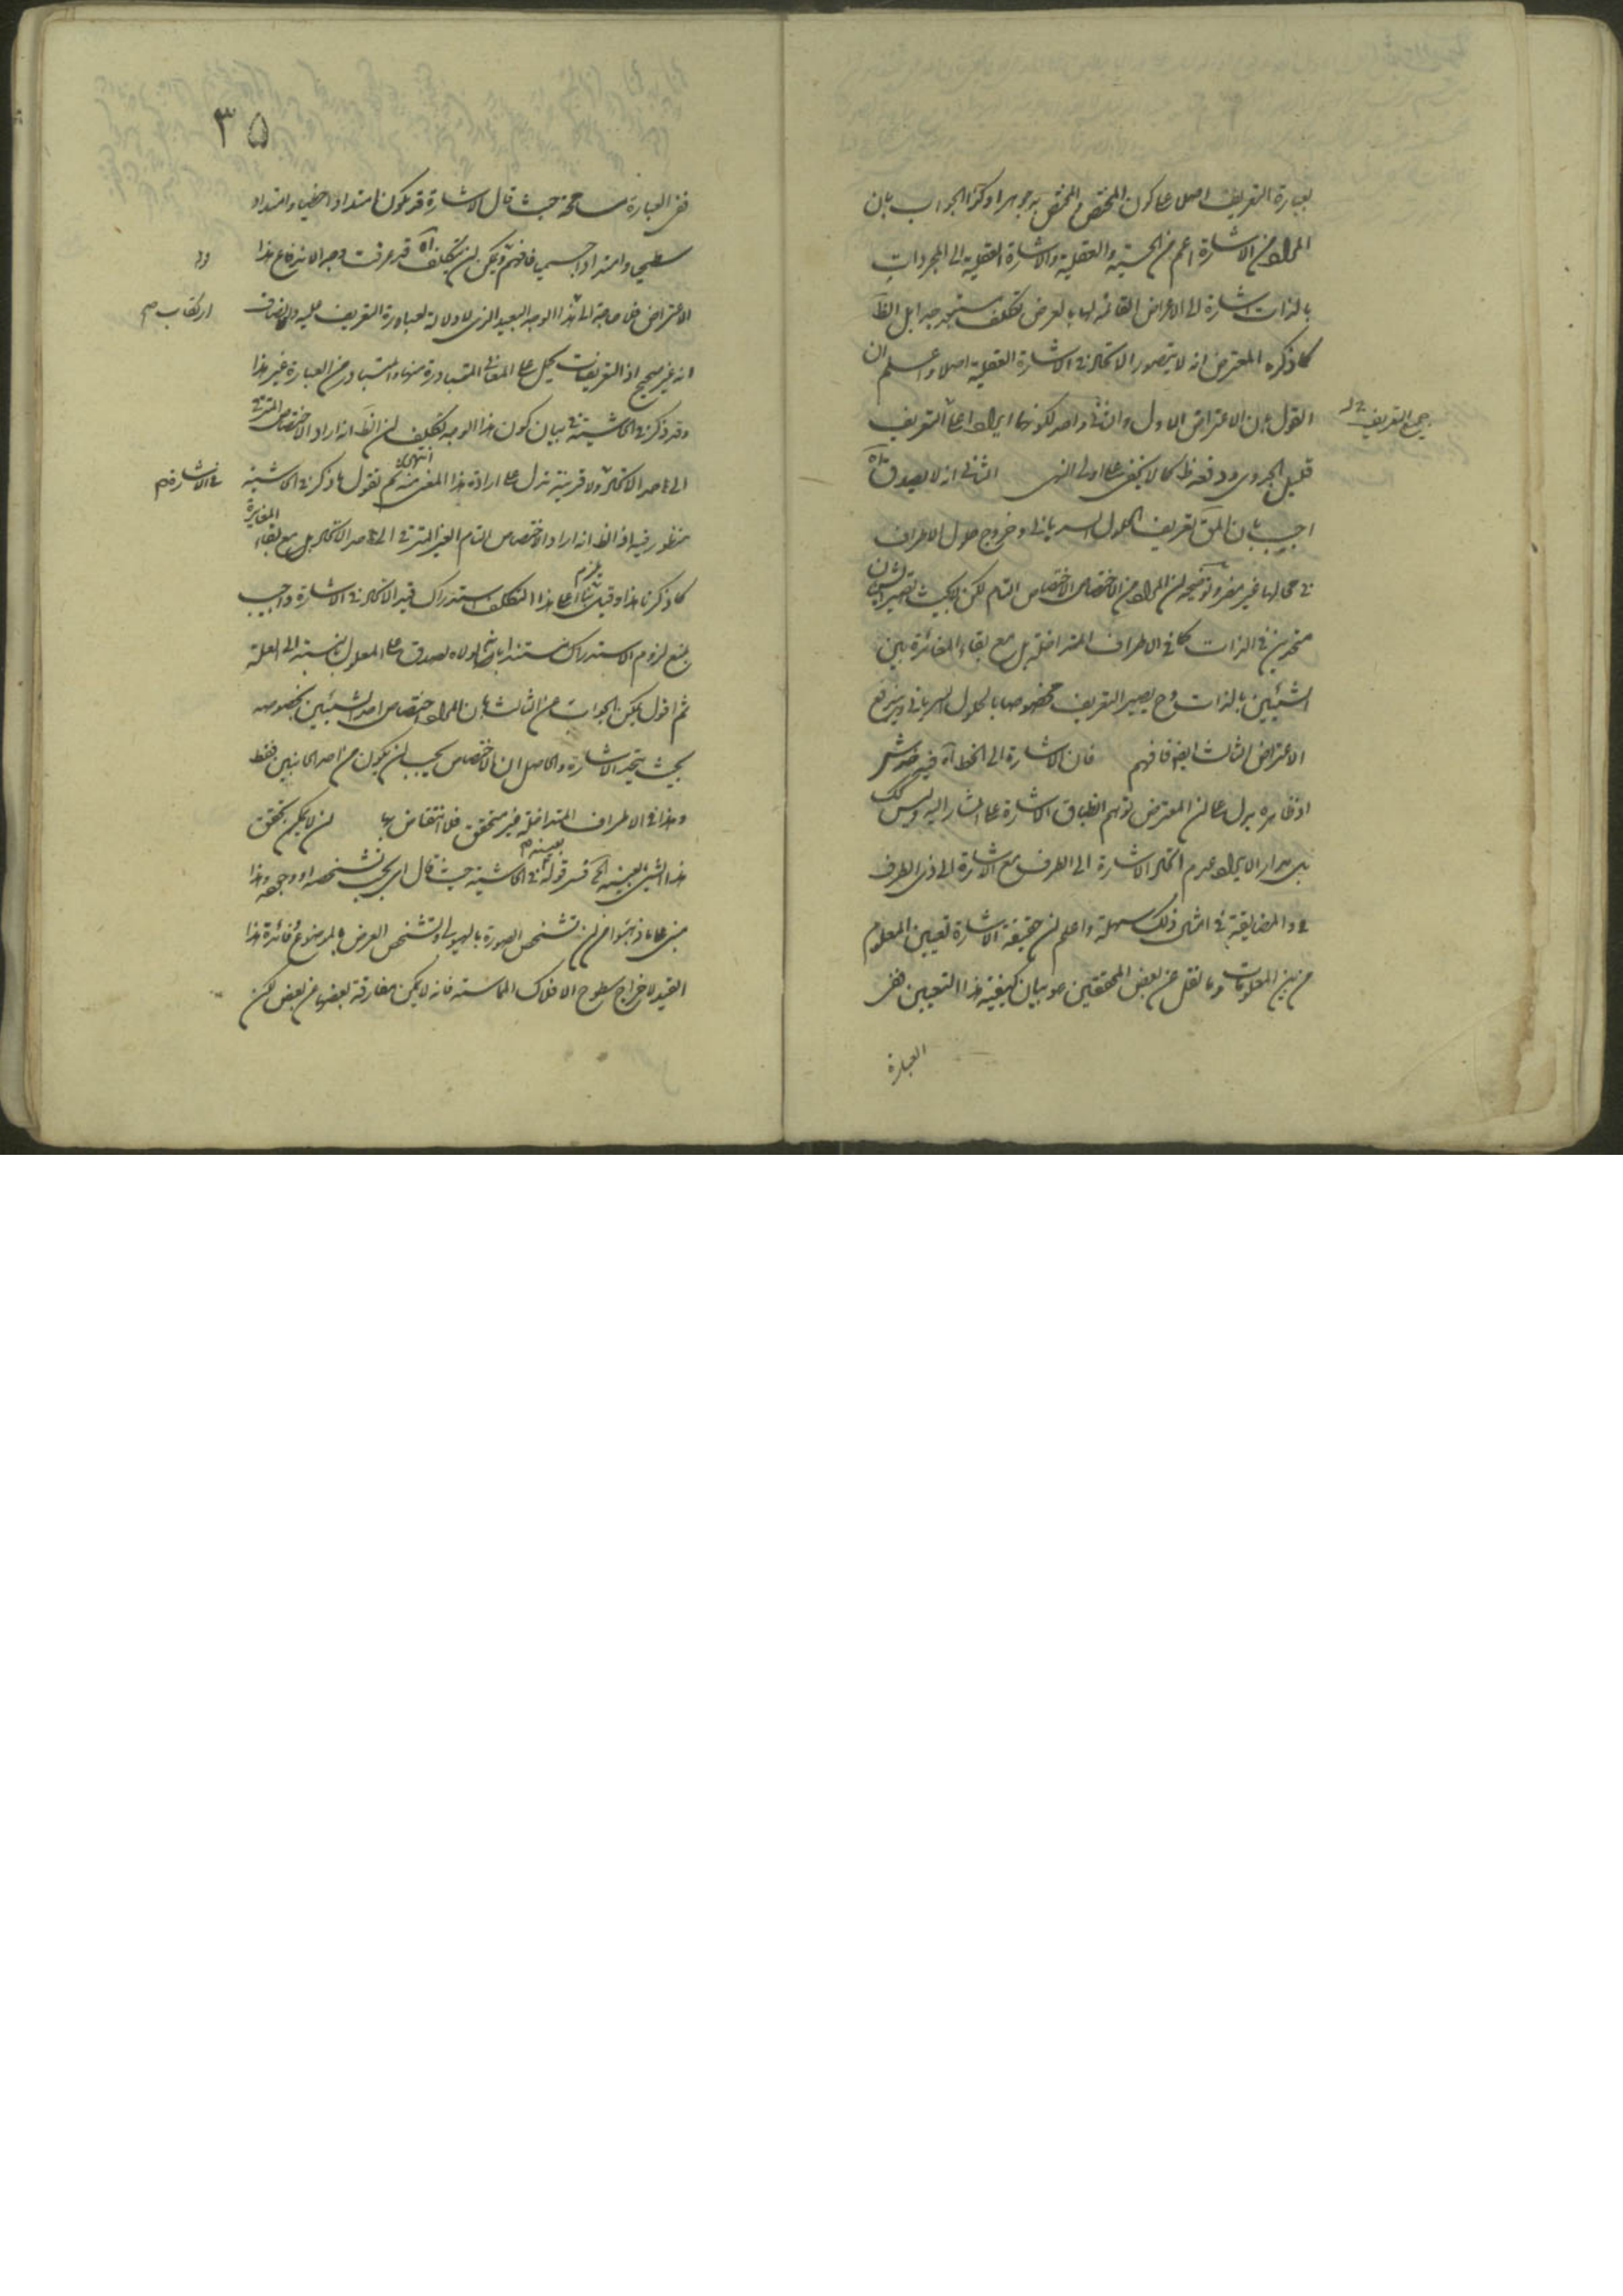 بعبارة التعريف اصلا على كون المختص والمختص به جوهرا وكذا الجواب بان
المراد من الاشارة اعم من الحسية والعقلية والاشارة العقلية الى المجردات
بالذات اشارة الى الاعراض القائمة بها بالعرض تكلف
كما ذكره المعترض انه لا يتصور الاتحاد في الاشارة العقلية اصلا واعلم ان
القول بان الاعتراض الاول والثاني واحد لكونهما ايرادا على التعريف
جمع التعريف
قليل الجدوى ودفعه ظ كما لا يخفى على اولى النهى الثاني انه لا يصدق آه
اجيب بان المق تعريف الحلول السرياني وخروج حلول الاطراف
في محالها غير مضر وتوضيحه ان المراد من الاختصاص الاختصاص التام لكن لا بحيث تصير الشيئان
متحدين في الذات كما في الاطراف المتداخلة بل مع بقاء المغائرة بين
الشيئين بالذات وح يصير التعريف مخصوصا بالحلول السرياني ويندفع
الاعتراض الثالث ايضا فافهم فان الاشارة الى الخط آه فيه خدش
اذ ظاهره يدل على ان المعترض توهم انطباق الاشارة على المشار اليه وليس كك
بل مدار الايراد عدم اتحاد الاشارة الى الطرف مع الاشارة الى ذي الطرف
والمضايقة في امثال ذلك سهلة واعلم ان حقيقة الاشارة تعيين المعلوم
من بين المعلومات وما نقل عن بعض المحققين هو بيان كيفية هذا التعيين ففي
العبارة
٣٥
ففي العبارة مسامحة حيث قال الاشارة قد يكون امتدادا خطيا وامتدادا
سطحيا وامتدادا جسميا فافهم ويمكن ان يتكلف آه قد عرفت وجه الاندفاع هذا
الاعتراض فلا حاجة الى هذا الوجه البعيد الذي لا دلالة لعبارة التعريف عليه والانصاف
ارتكاب صح
انه غير صحيح اذ التعريفات يحمل على المعاني المتبادرة منها والمتبادر من العبارة غير هذا
وقد ذكر في الحاشية في بيان كون هذا الوجه تكلف ان الظ انه اراد الاختصاص المترتب
الى حد الاتحاد ولا قرينة تدل على ارادة هذا المعنى منه انتهى ثم نقول ما ذكر في الحاشية
في الاشارة صح
منظور فيه اذ الظ انه اراد الاختصاص التام الغير المترتب الى حد الاتحاد بل مع بقاء المغايرة
كما ذكرنا هذا وقيل يلزم بناء على هذا التكلف استدراك قيد الاتحاد في الاشارة واجيب
بمنع لزوم الاستدراك مستندا بانه لولاه لصدق على المعلول بالنسبة الى العلة
ثم اقول يمكن الجواب عن الثالث بان المراد اختصاص احد الشيئين بخصوصه
بحيث يتحد الاشارة والحاصل ان الاختصاص يجب ان يكون من احد الجانبين فقط
وهذا في الاطراف المتداخلة غير متحقق فلا انتقاض بها ان لا يمكن تحقق
هذا الشئ بعينه آه فسر قوله بعينه في الحاشية حيث قال اى بحسب تشخصه او وجوده هذا
مبنى على ما ذهبوا من ان تشخص الصورة بالهيولى وتشخص العرض بالموضوع فائدة هذا
القيد لاخراج سطوح الافلاك المماسة فانه لا يمكن مفارقة بعضها عن بعض لكن